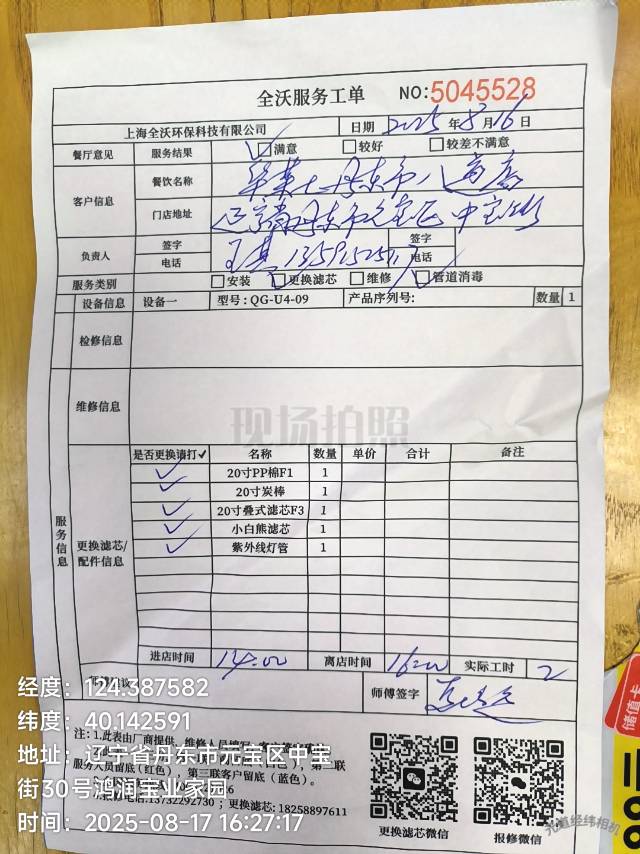 全沃服务工单 NO:5045528
上海全沃环保科技有限公司 日期 2025年8月16日
餐厅意见 服务结果 ✓ □满意 □较好 □较差不满意
客户信息 餐饮名称
门店地址 辽宁省丹东市元宝区中宝
负责人 签字 签字
电话 电话
服务类别 □安装 □更换滤芯 □维修 □管道消毒
设备信息 设备一 型号:QG-U4-09 产品序列号: 数量 1
检修信息
维修信息
现场拍照
服务信息
更换滤芯/配件信息
是否更换请打✓ 名称 数量 单价 合计 备注
✓ 20寸PP棉F1 1
✓ 20寸炭棒 1
✓ 20寸叠式滤芯F3 1
✓ 小白熊滤芯 1
✓ 紫外线灯管 1
进店时间 14:00 离店时间 16:00 实际工时 2
师傅签字
注:1.此表由厂商提供,维修人员
服务人员留底(红色),第三联客户留底(蓝色)。
电话:13732292730;更换滤芯:18258897611
更换滤芯微信 报修微信
经度:124.387582
纬度:40.142591
地址:辽宁省丹东市元宝区中宝
街30号鸿润宝业家园
时间:2025-08-17 16:27:17
元道经纬相机
储值卡